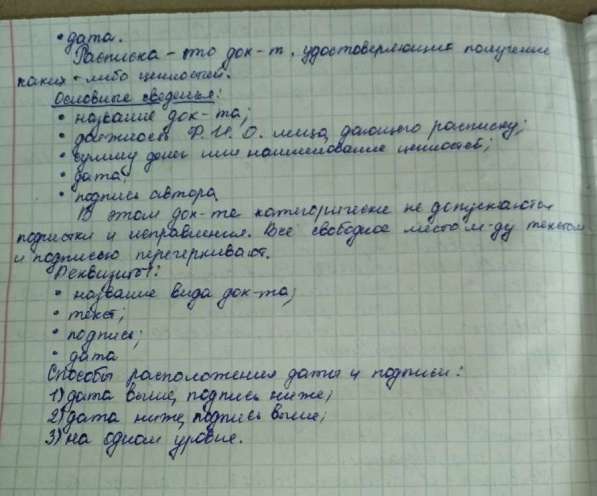 • дата.
Расписка - это док-т, удостоверяющий получение
каких-либо ценностей.
Основные сведенья:
• название док-та;
• должность Ф.И.О. лица, дающего расписку;
• сумму денег или наименование ценностей;
• дата;
• подпись автора.
В этом док-те категорически не допускаются
подчистки и исправления. Всё свободное место м-ду текстом
и подписью перечеркивают.
Реквизиты:
• название вида док-та;
• текст;
• подпись;
• дата
Способы расположения даты и подписи:
1) дата выше, подпись ниже;
2) дата ниже, подпись выше;
3) на одном уровне.